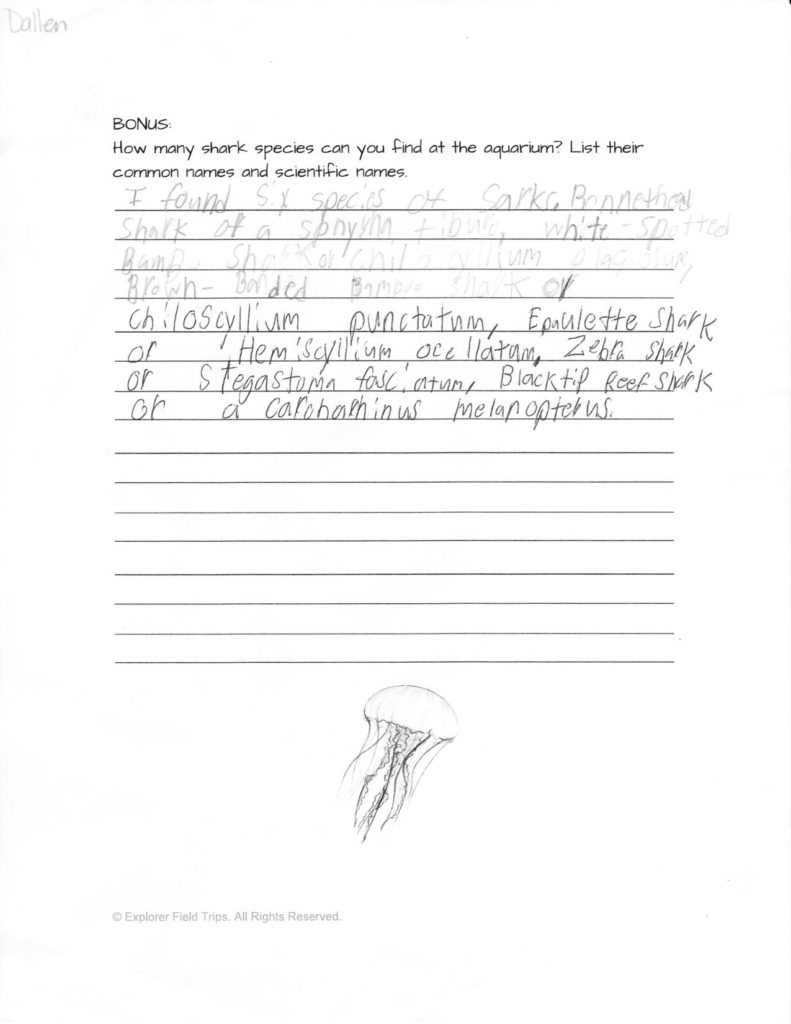 Dallen
BONUS:
How many shark species can you find at the aquarium? List their
common names and scientific names.
I found Six species of Sarks, Bonnethead
Shark or a sphyrna tiburo, white-spotted
Bamp Shark or chiloscyllium plagiosum,
Brown-Banded Bamboo shark or
chiloscyllium punctatum, Epaulette Shark
or Hemiscyllium ocellatum, Zebra shark
or Stegastoma fasciatum, Blacktip Reef Shark
or a Carcharhinus melanopterus.
© Explorer Field Trips. All Rights Reserved.